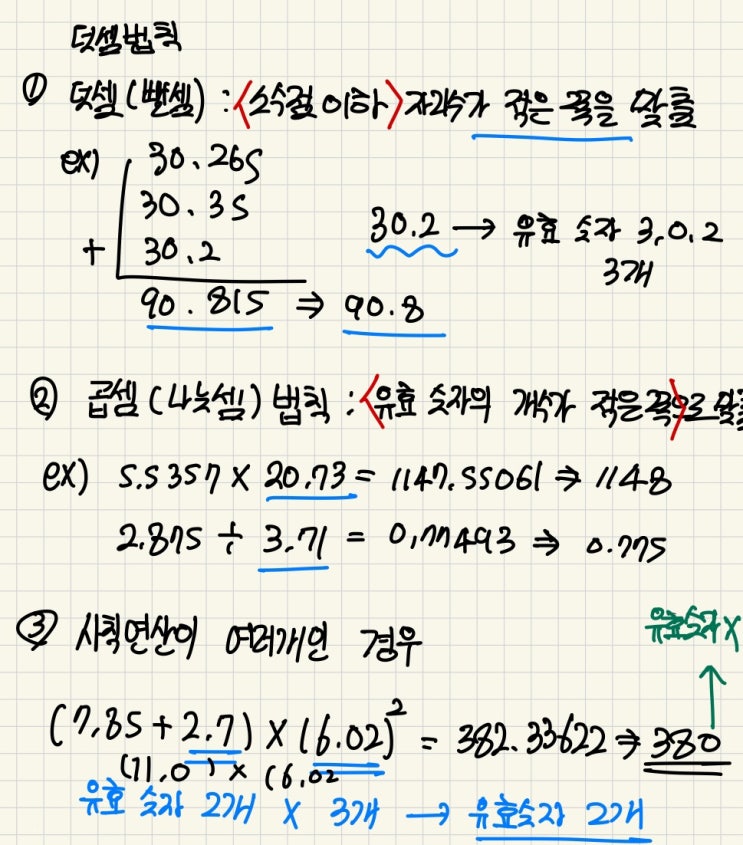 덧셈법칙
① 덧셈(뺄셈) : <소수점 이하> 자리수가 적은 쪽을 맞춤
ex) 30.265
30.35
+ 30.2
90.815 ⇒ 90.8
30.2 → 유효 숫자 3,0,2
3개
② 곱셈(나눗셈) 법칙 : <유효 숫자의 개수가 적은쪽>으로
ex) 5.5357 × 20.73 = 1147.55061 ⇒ 1148
2.875 ÷ 3.71 = 0,77493 ⇒ 0.775
③ 사칙연산이 여러개인 경우
유효숫자 X
(7.85 + 2.7) × (6.02)² = 382.33622 ⇒ 380
(11.0) × (6.02
유효 숫자 2개 × 3개 → 유효숫자 2개